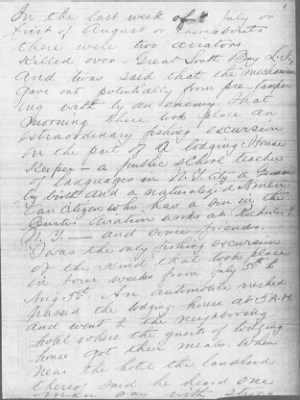 In the last week of July or
first of August or thereabouts
there were two aviators
killed over Great South Bay L.I.
and twas said that the mechanism
gave out potentially from pre-tamper
ing with by an enemy. That
morning there took place an
extraordinary fishing excursion
on the part of a lodging House
Keeper — a public school teacher
of languages in N.Y. City a German
by birth and a naturalized Ameri
can citizen who has a son in the
Curtis Aviation works at
N.Y. — and some friends.
Twas the only fishing excursion
of the kind that took place
in four weeks from July 5th to
Aug 5th. An automobile rushed
passed the lodging house at 3 A.M.
and went to the neighboring
hotel where the guests of lodging
house got their meals. When
near the hotel the landlord
thereof said he heard one
man say with strong